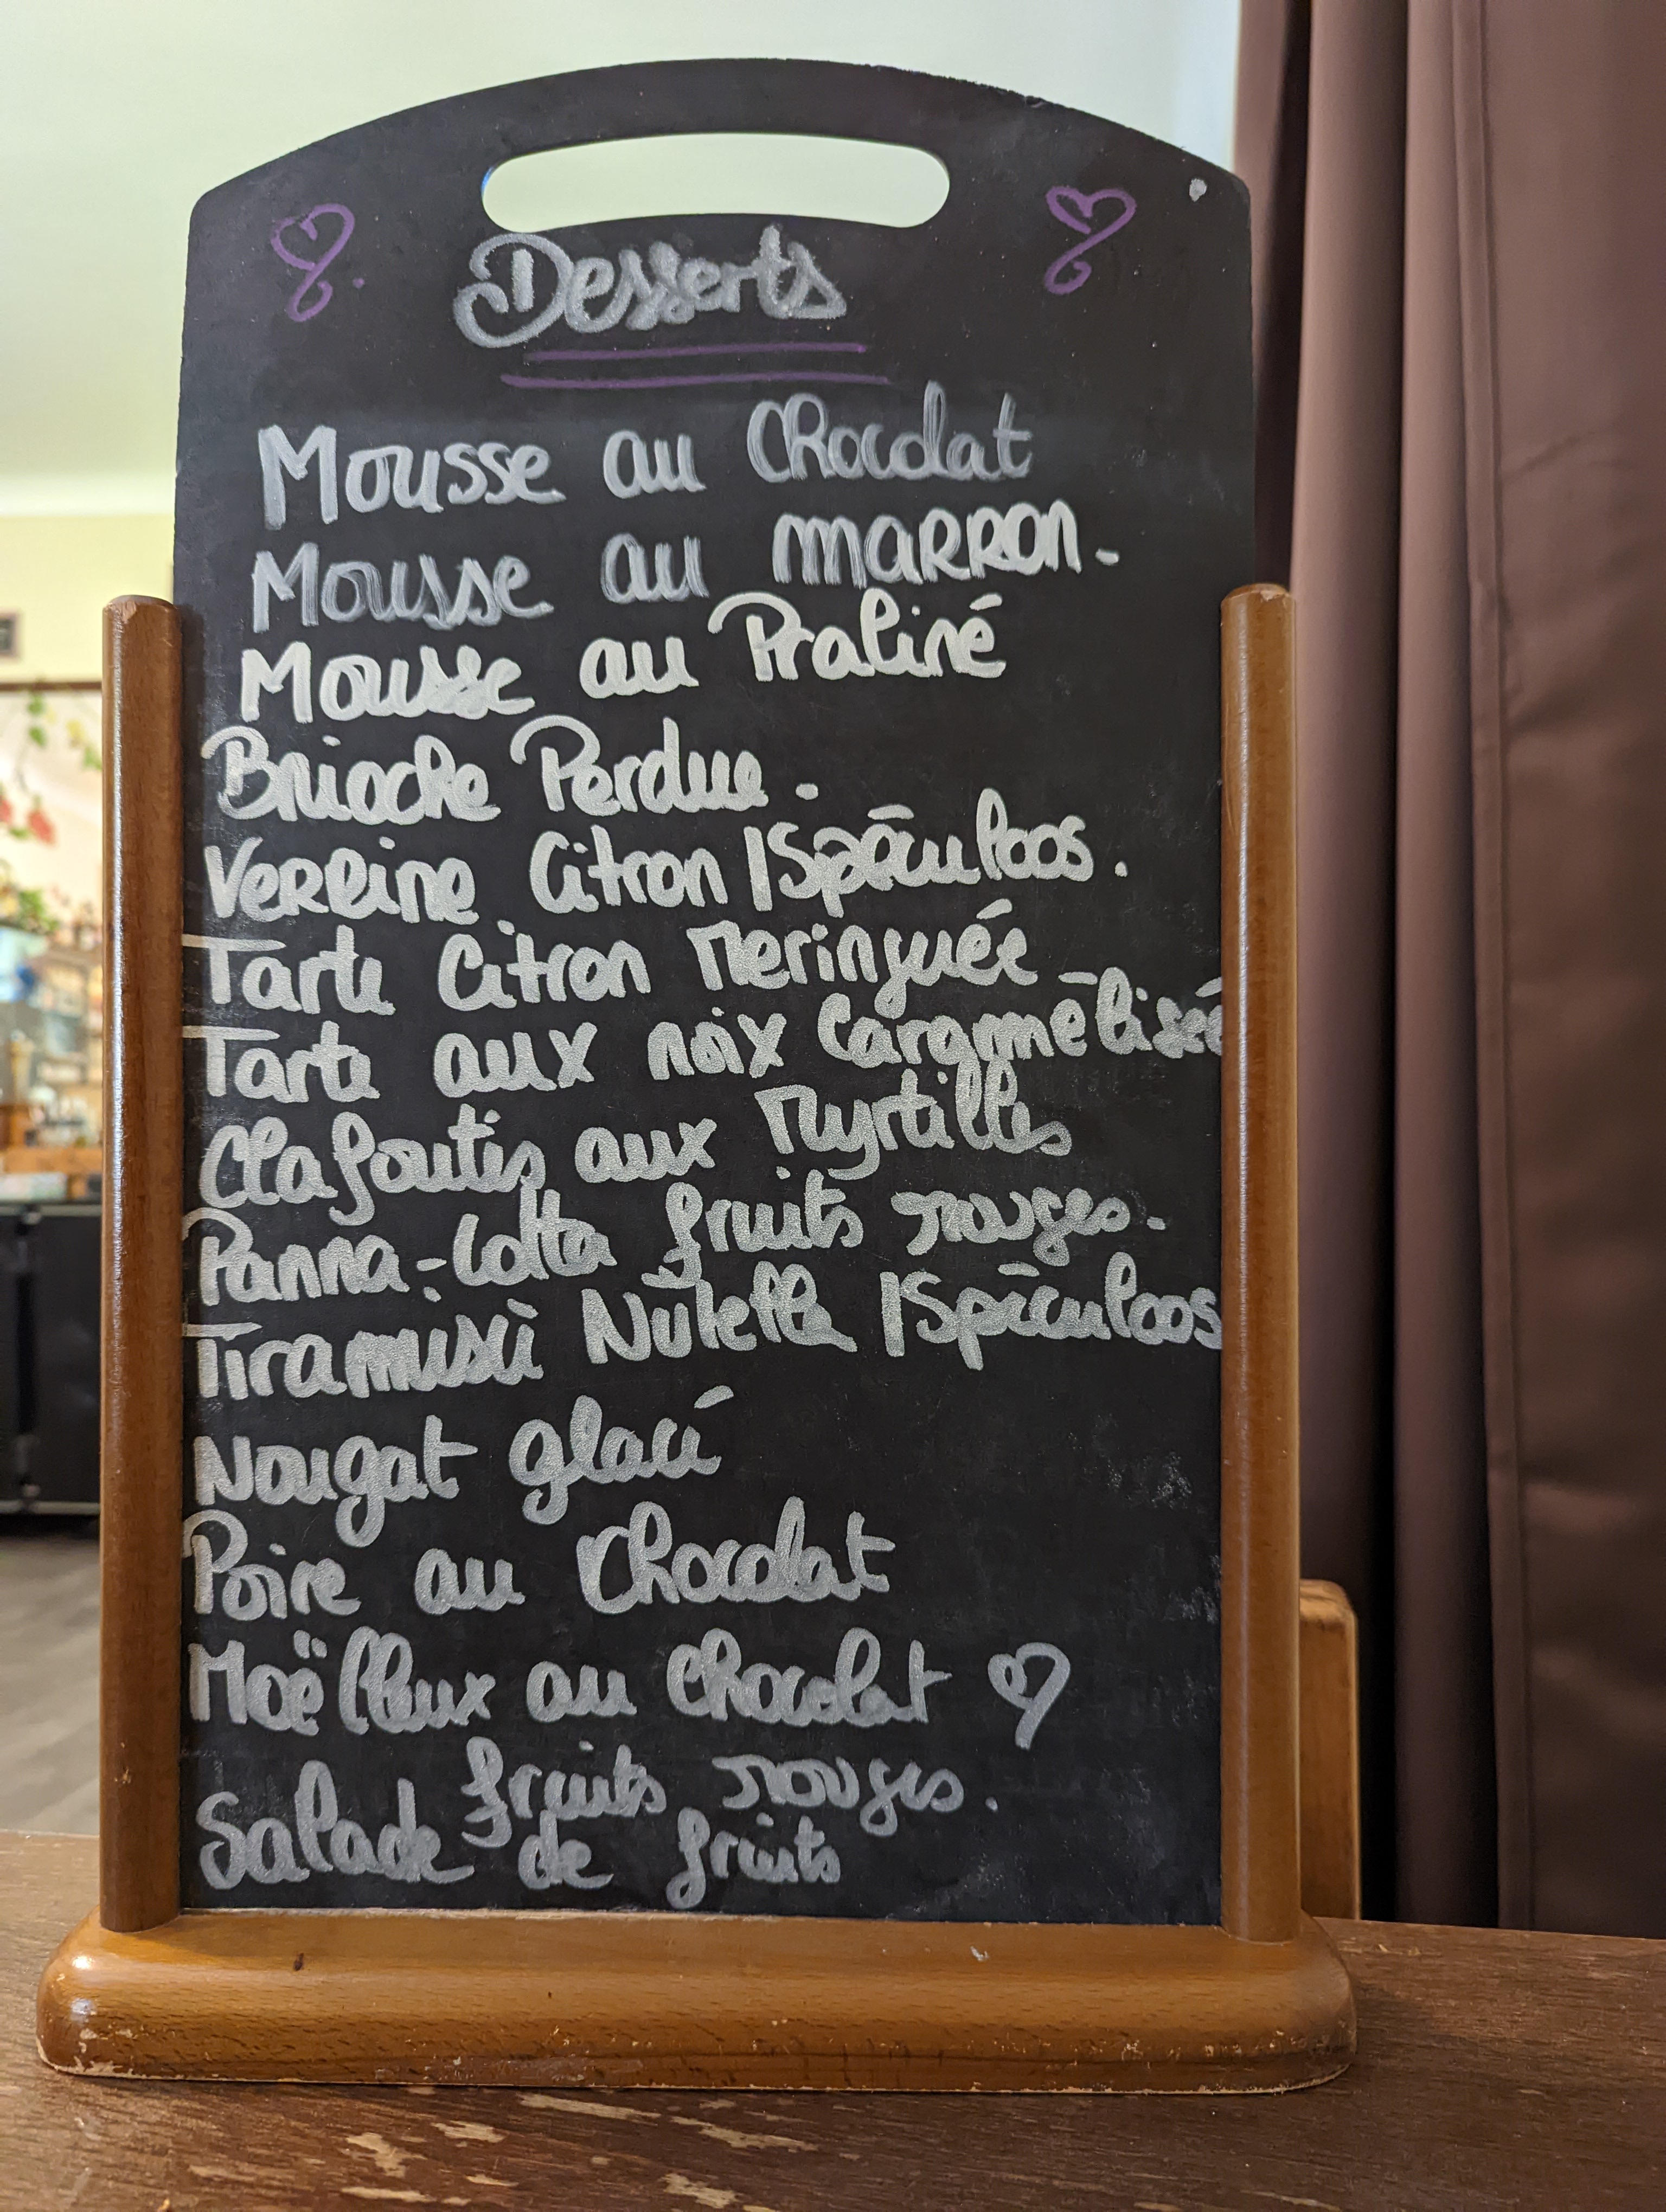 Desserts
Mousse au Chocolat
Mousse au marron.
Mousse au Praliné
Brioche Perdue.
Verrine Citron / Spéculoos.
Tarte Citron Meringuée
Tarte aux noix Caramélisée
Clafoutis aux Myrtilles
Panna-Cotta fruits rouges.
Tiramisù Nutella / Spéculoos
Nougat glacé
Poire au Chocolat
Moëlleux au chocolat
fruits rouges.
Salade de fruits